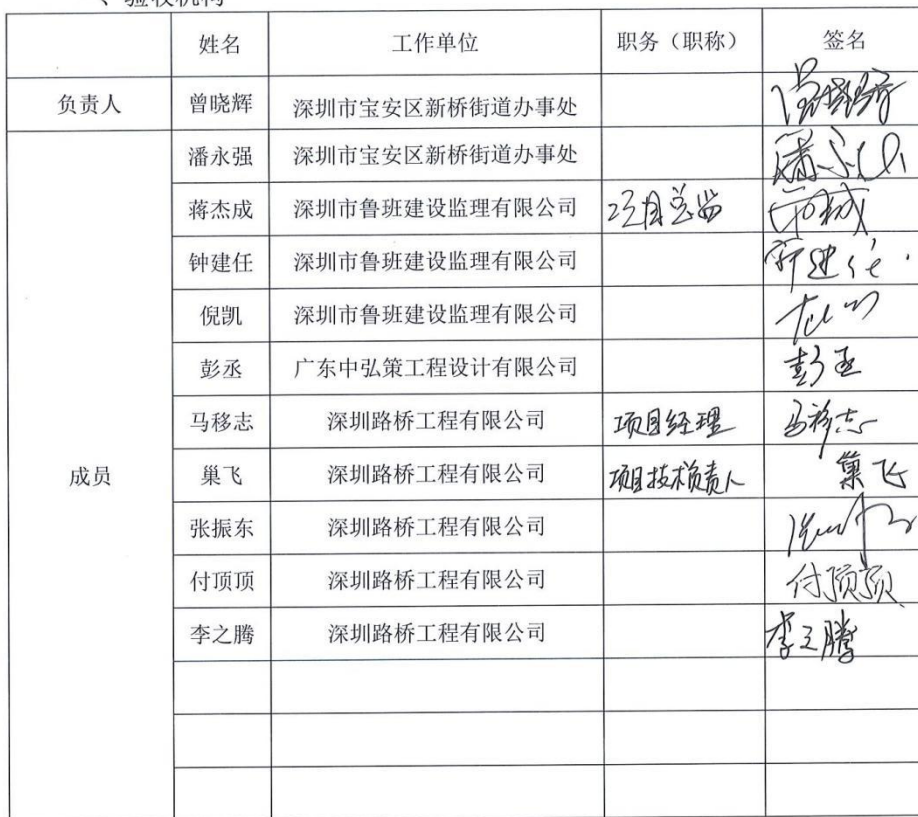 、验收机构
姓名 工作单位 职务（职称） 签名
负责人 曾晓辉 深圳市宝安区新桥街道办事处
潘永强 深圳市宝安区新桥街道办事处
蒋杰成 深圳市鲁班建设监理有限公司 项目总监
钟建任 深圳市鲁班建设监理有限公司
倪凯 深圳市鲁班建设监理有限公司
彭丞 广东中弘策工程设计有限公司 彭丞
马移志 深圳路桥工程有限公司 项目经理 马移志
成员 巢飞 深圳路桥工程有限公司 项目技术负责人 巢飞
张振东 深圳路桥工程有限公司
付顶顶 深圳路桥工程有限公司 付顶顶
李之腾 深圳路桥工程有限公司 李之腾